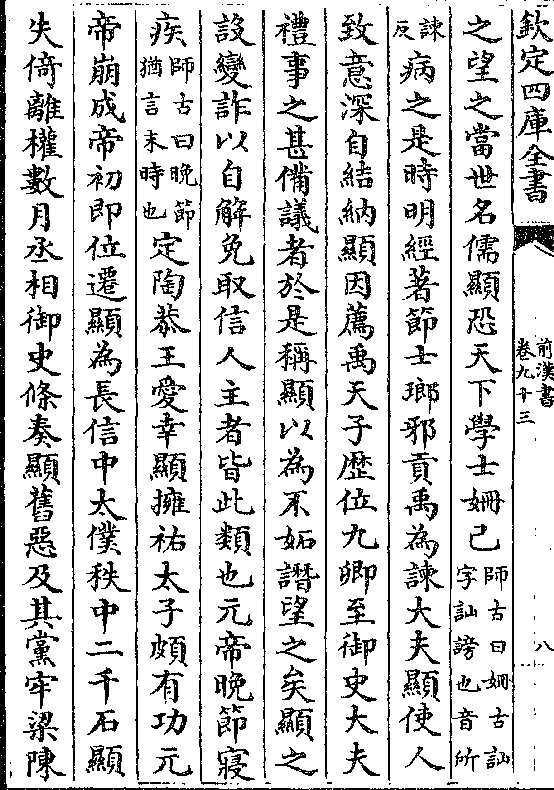 欽定四庫全書
前漢書
卷九十三
八
之望之當世名儒顯恐天下學士姍己師古曰姍古訕字訕謗也音所
諫反病之是時明經著節士瑯邪貢禹為諫大夫顯使人
致意深自結納顯因薦禹天子歴位九卿至御史大夫
禮事之甚備議者於是稱顯以為不妬譖望之矣顯之
設變詐以自解免取信人主者皆此類也元帝晚節寢
疾師古曰晚節猶言末時也定陶恭王愛幸顯擁祐太子頗有功元
帝崩成帝初即位遷顯為長信中太僕秩中二千石顯
失倚離權數月丞相御史條奏顯舊惡及其黨牢梁陳